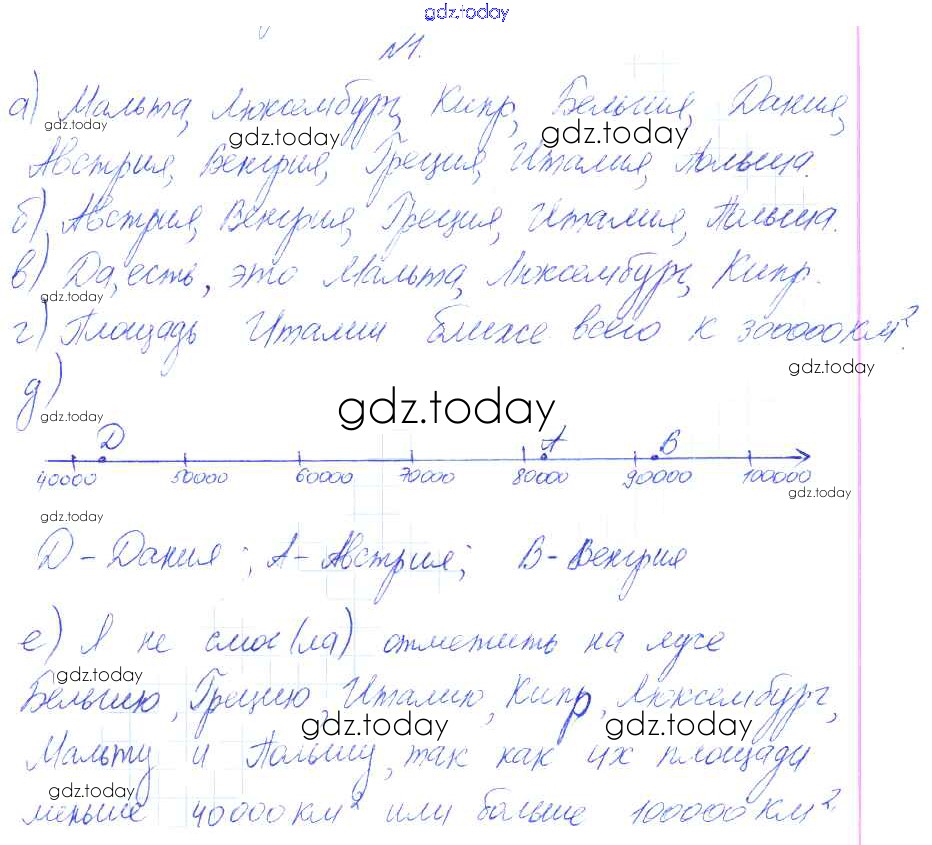 gdz.today
№1.
а) Мальта, Люксембург, Кипр, Бельгия, Дания,
gdz.today gdz.today gdz.today
Австрия, Венгрия, Греция, Италия, Польша.
б) Австрия, Венгрия, Греция, Италия, Польша.
в) Да, есть, это Мальта, Люксембург, Кипр.
gdz.today
г) Площадь Италии ближе всего к 300000 км².
gdz.today
д)
gdz.today gdz.today
D A B
40000 50000 60000 70000 80000 90000 100000
gdz.today
gdz.today
D - Дания; A - Австрия; B - Венгрия
е) Я не смог(ла) отметить на луче
gdz.today
Бельгию, Грецию, Италию, Кипр, Люксембург,
gdz.today gdz.today
Мальту и Польшу, так как их площади
gdz.today
меньше 40000 км² или больше 100000 км²